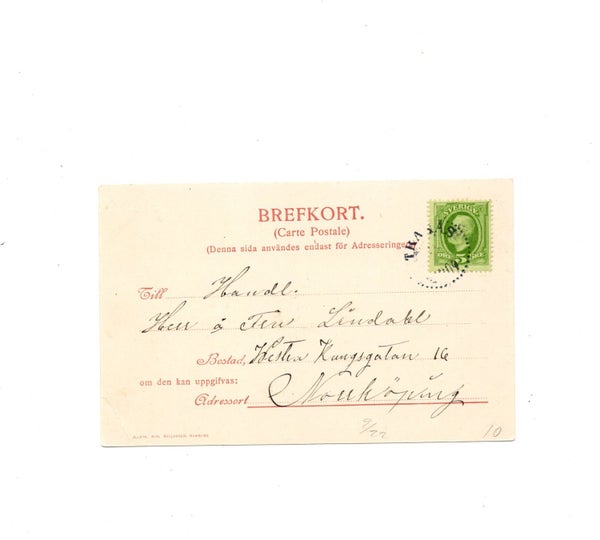 BREFKORT.
(Carte Postale)
(Denna sida användes endast för Adresseringe
SVERIGE
ÖRE 5 ÖRE
Till Handl.
Herr & Fru Lindahl
Bostad, Westra Kungsgatan 16
om den kan uppgifvas:
Adressort Norrköping
9/22
10